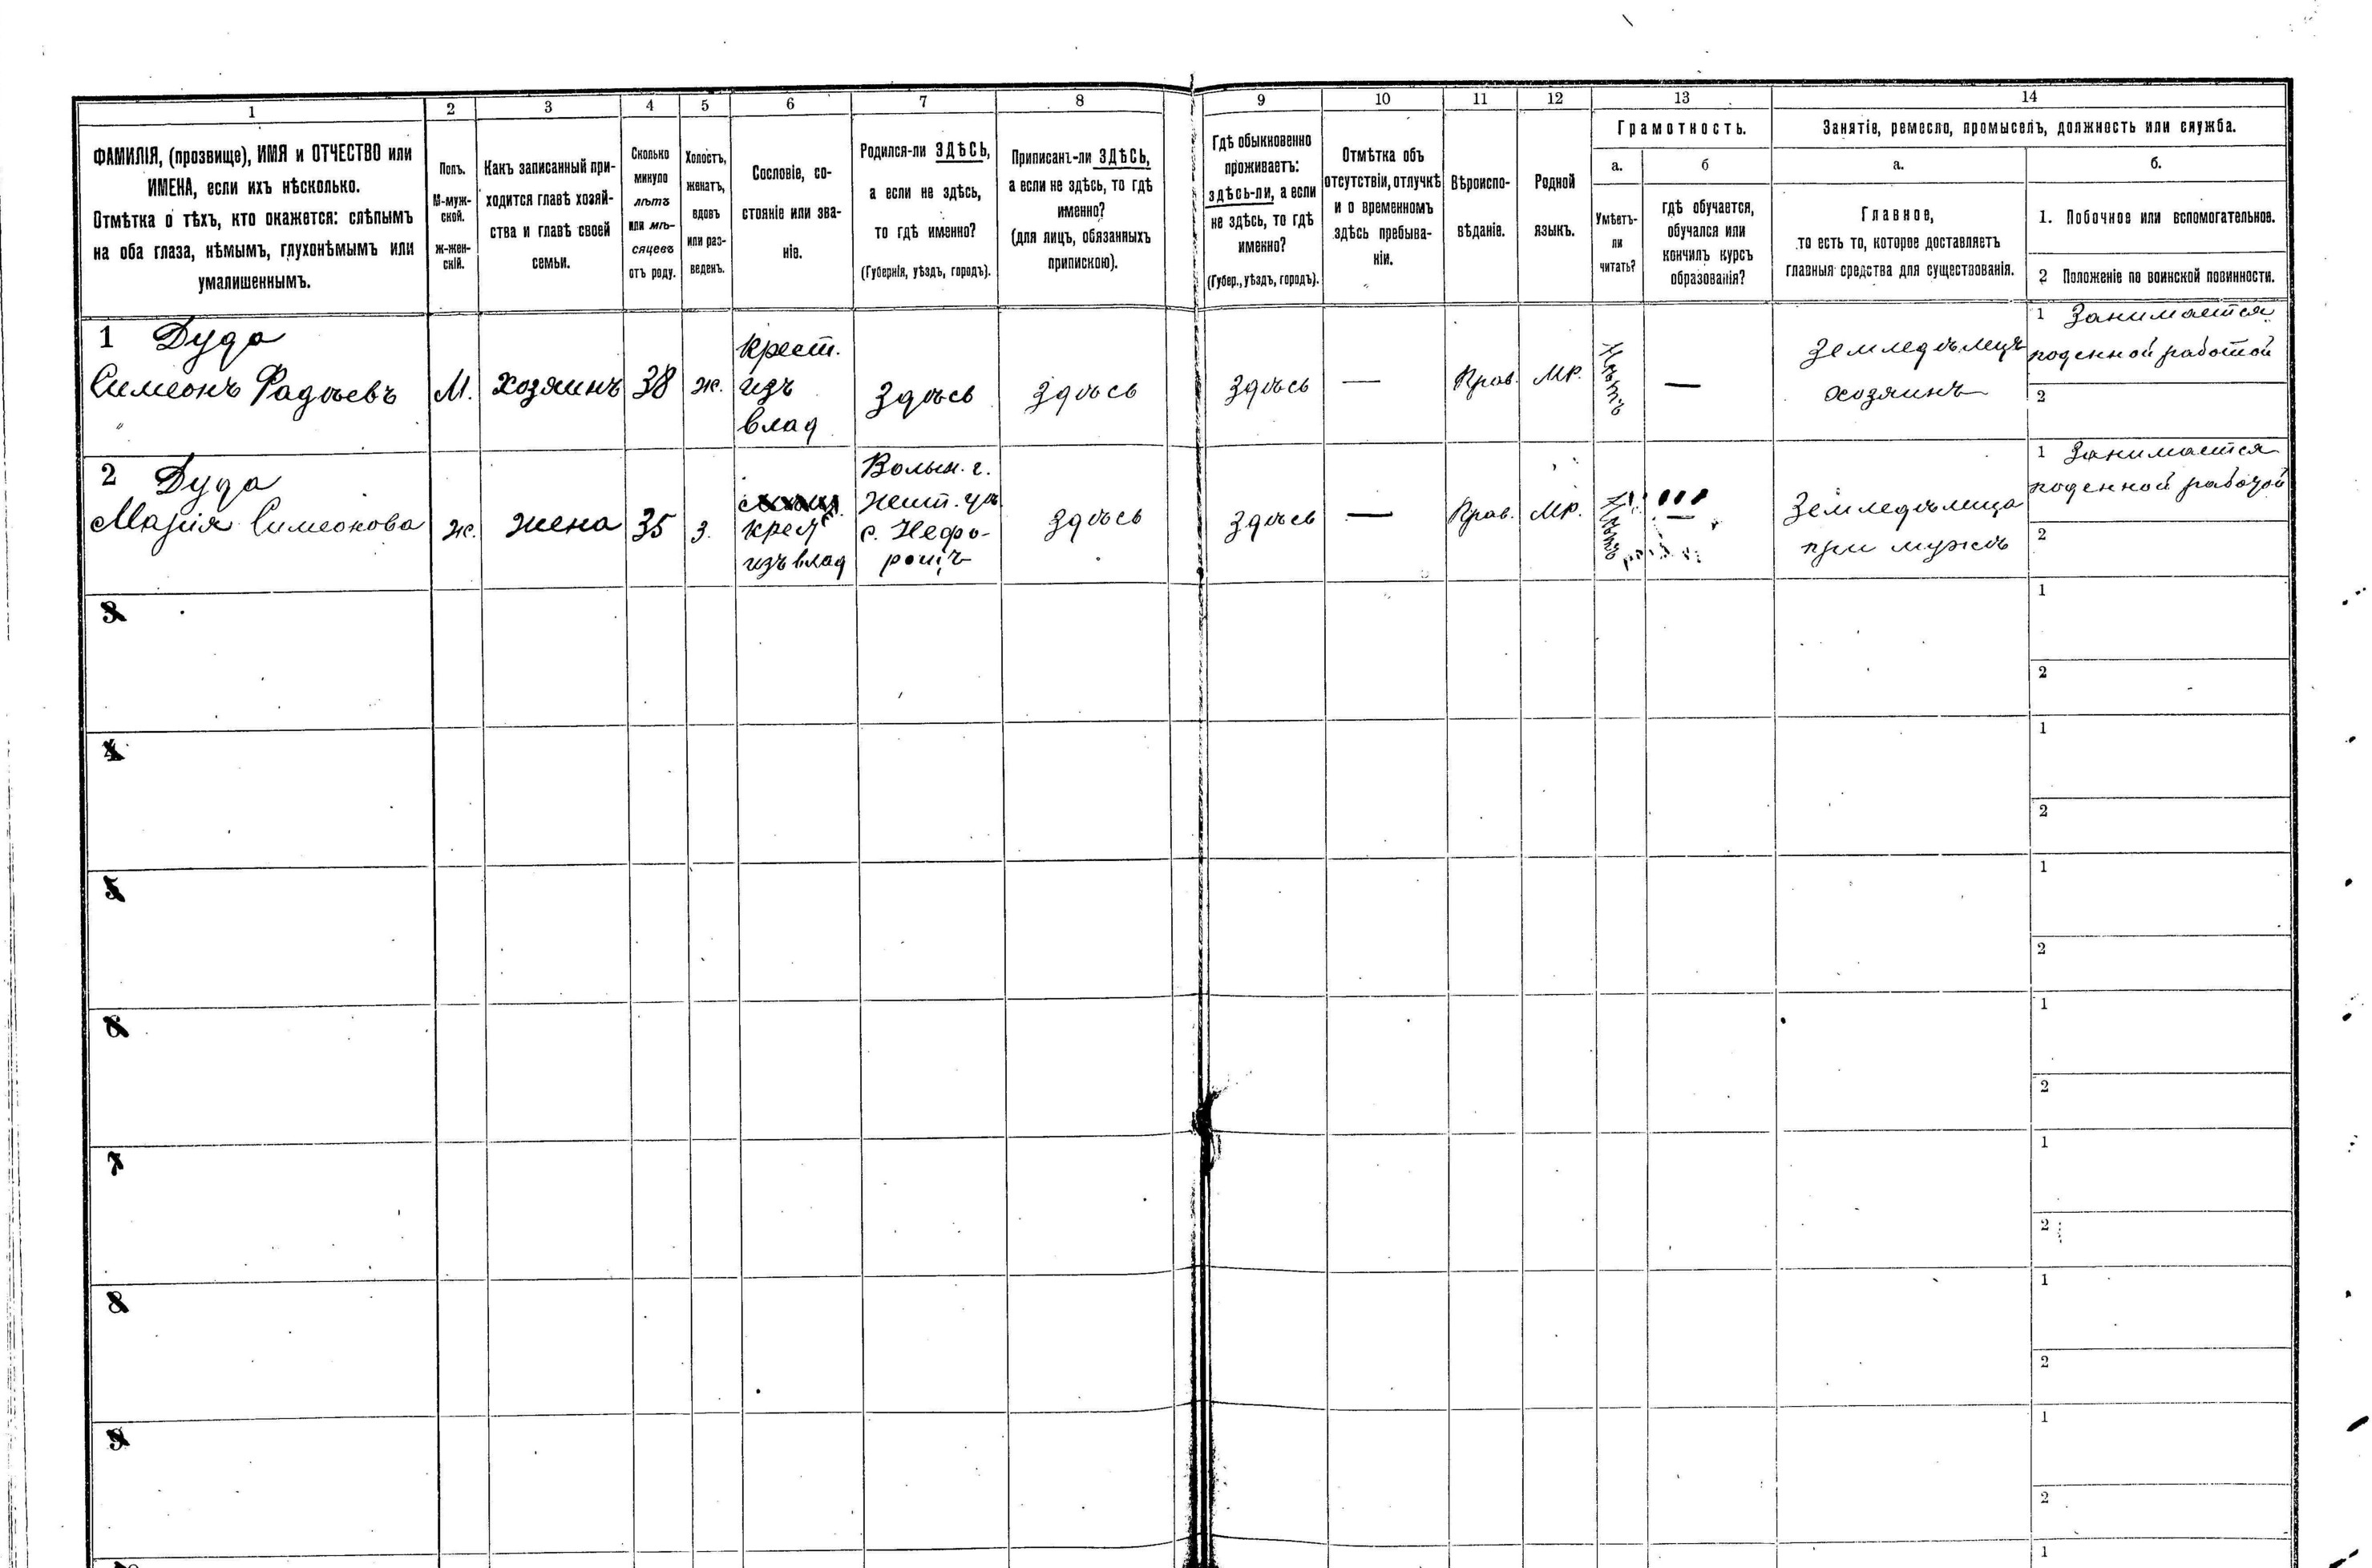 1 2 3 4 5 6 7 8 9 10 11 12 13 14
ФАМИЛІЯ, (прозвище), ИМЯ и ОТЧЕСТВО или
ИМЕНА, если ихъ нѣсколько.
Отмѣтка о тѣхъ, кто окажется: слѣпымъ
на оба глаза, нѣмымъ, глухонѣмымъ или
умалишеннымъ.
Полъ.
М-муж-
ской.
ж-жен-
скій.
Какъ записанный при-
ходится главѣ хозяй-
ства и главѣ своей
семьи.
Сколько
минуло
лѣтъ
или мѣ-
сяцевъ
отъ роду.
Холостъ,
женатъ,
вдовъ
или раз-
веденъ.
Сословіе, со-
стояніе или зва-
ніе.
Родился-ли ЗДѢСЬ,
а если не здѣсь,
то гдѣ именно?
(Губернія, уѣздъ, городъ).
Приписанъ-ли ЗДѢСЬ,
а если не здѣсь, то гдѣ
именно?
(для лицъ, обязанныхъ
припискою).
Гдѣ обыкновенно
проживаетъ:
здѣсь-ли, а если
не здѣсь, то гдѣ
именно?
(Губер., уѣздъ, городъ).
Отмѣтка объ
отсутствіи, отлучкѣ
и о временномъ
здѣсь пребыва-
ніи.
Вѣроиспо-
вѣданіе.
Родной
языкъ.
Грамотность.
а.
Умѣетъ-
ли
читать?
б
гдѣ обучается,
обучался или
кончилъ курсъ
образованія?
Занятіе, ремесло, промыселъ, должность или служба.
а.
Главное,
то есть то, которое доставляетъ
главныя средства для существованія.
б.
1. Побочное или вспомогательное.
2 Положеніе по воинской повинности.
1 Дуда
Симеонъ Фадѣевъ
М.
хозяинъ
38
ж.
крест.
изъ
влад
Здѣсь
здѣсь
здѣсь
—
Прав.
Мр.
Нѣтъ
—
Земледѣлецъ
хозяинъ
1 Занимается
поденной работой
2
2 Дуда
Марія Симеонова
ж.
жена
35
з.
крест
изъ влад
Волын. г.
Жит. у.
с. Нефо-
рощъ
здѣсь
здѣсь
—
Прав.
Мр.
Нѣтъ
—
Земледѣлица
при мужѣ
1 Занимается
поденной работой
2
3
1
2
4
1
2
5
1
2
6
1
2
7
1
2
8
1
2
9
1
2
1